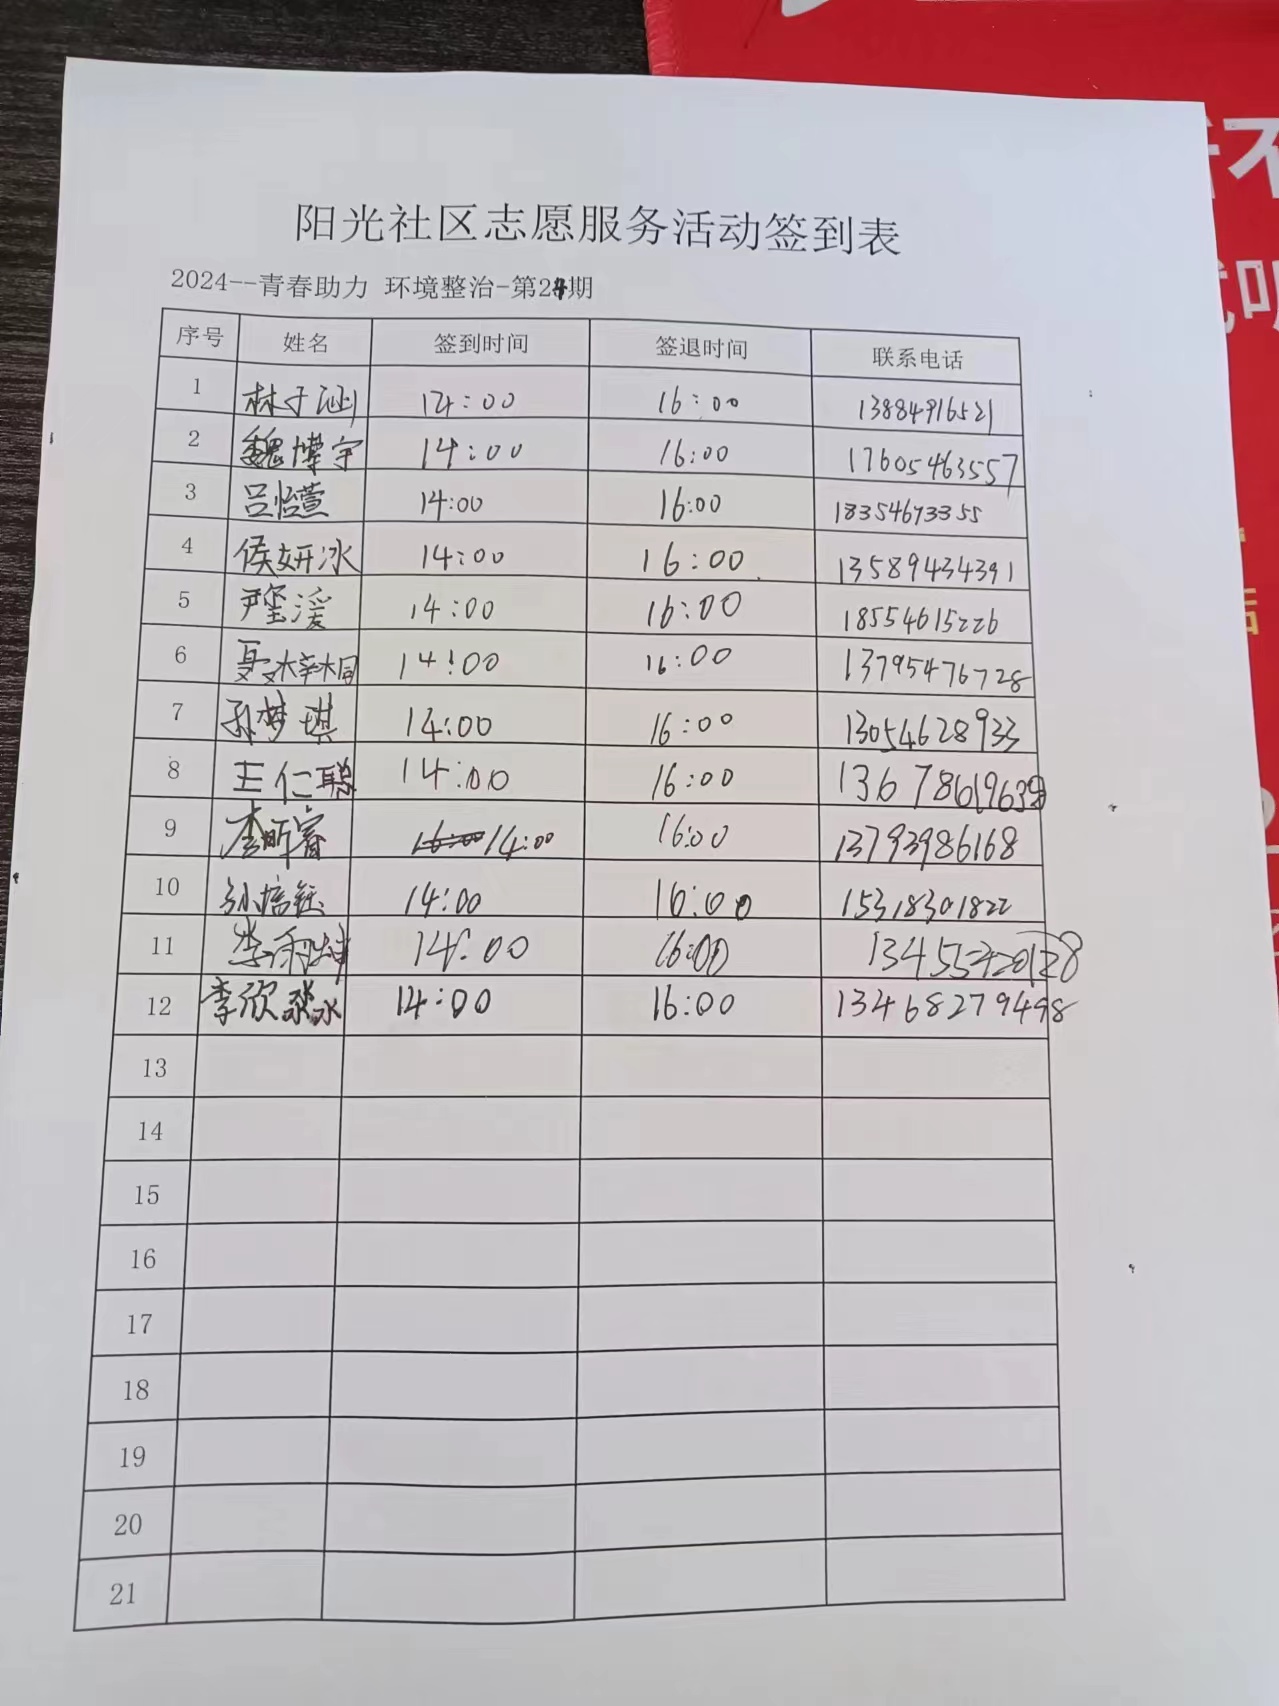 不
阳光社区志愿服务活动签到表
2024--青春助力 环境整治-第2期
序号 姓名 签到时间 签退时间 联系电话
1 林子涵 14:00 16:00 13884916521
2 魏博宇 14:00 16:00 17605463557
3 吕怡萱 14:00 16:00 18354673355
4 侯妍冰 14:00 16:00 13589434391
5 尹玺湲 14:00 16:00 18554615226
6 夏梓桐 14:00 16:00 13795476728
7 孙梦琪 14:00 16:00 13054628933
8 王仁聪 14:00 16:00
9 李昕睿 16:00 14:00 16:00 13793986168
10 孙培钰 14:00 16:00 15318301822
11 李 14:00 16:00
12 李欣淼 14:00 16:00 13468279498
13
14
15
16
17
18
19
20
21